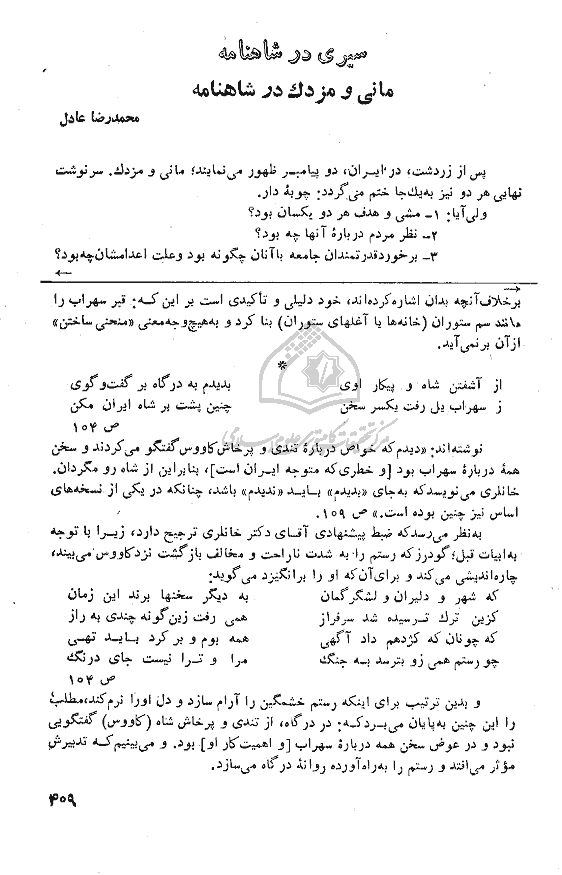 سیری در شاهنامه
مانی و مزدك در شاهنامه
محمدرضا عادل
پس از زردشت، در ایران، دو پیامبر ظهور می‌نمایند؛ مانی و مزدك. سرنوشت
نهایی هر دو نیز به‌یك‌جا ختم می‌گردد: چوبهٔ دار.
ولی‌آیا: ۱- مشی و هدف هر دو یکسان بود؟
۲- نظر مردم دربارهٔ آنها چه بود؟
۳- برخورد قدرتمندان جامعه با آنان چگونه بود و علت اعدامشان چه بود؟
برخلاف آنچه بدان اشاره کرده‌اند، خود دلیلی و تأکیدی است بر این که: قبر سهراب را
مانند سم ستوران (خانه‌ها یا آغلهای ستوران) بنا کرد و به‌هیچ‌وجه‌معنی «منحنی ساختن»
از آن بر نمی‌آید.
*
از آشفتن شاه و پیکار اوی بدیدم به درگاه بر گفت‌وگوی
ز سهراب یل رفت یکسر سخن چنین پشت بر شاه ایران مکن
ص ۱۰۴
نوشته‌اند: «دیدم که خواص دربارهٔ تندی و پرخاش کاووس گفتگو می‌کردند و سخن
همه دربارهٔ سهراب بود [و خطری‌که متوجه ایران است]، بنابراین از شاه رو مگردان.
خانلری می‌نویسدکه به‌جای «بدیدم» باید «ندیدم» باشد، چنانکه در یکی از نسخه‌های
اساس نیز چنین بوده است.» ص ۱۰۹.
به‌نظر می‌رسدکه ضبط پیشنهادی آقای دکتر خانلری ترجیح دارد، زیرا با توجه
به‌ابیات قبل؛ گودرز که رستم را به شدت ناراحت و مخالف بازگشت نزد کاووس می‌بیند،
چاره‌اندیشی می‌کند و برای آن‌که او را برانگیزد می‌گوید:
که شهر و دلیران و لشگرگمان به دیگر سخنها برند این زمان
کزین ترك ترسیده شد سرفراز همی رفت زین‌گونه چندی به راز
که چونان که گژدهم داد آگهی همه بوم و بر کرد باید تهی
چو رستم همی زو بترسد به جنگ مرا و ترا نیست جای درنگ
ص ۱۰۴
و بدین ترتیب برای اینکه رستم خشمگین را آرام سازد و دل اورا نرم‌کند، مطلب
را این چنین به‌پایان می‌بردکه: در درگاه، از تندی و پرخاش شاه (کاووس) گفتگویی
نبود و در عوض سخن همه دربارهٔ سهراب [و اهمیت‌کار او] بود. و می‌بینیم‌که تدبیرش
مؤثر می‌افتد و رستم را به‌راه‌آورده روانهٔ درگاه می‌سازد.
۴۰۹